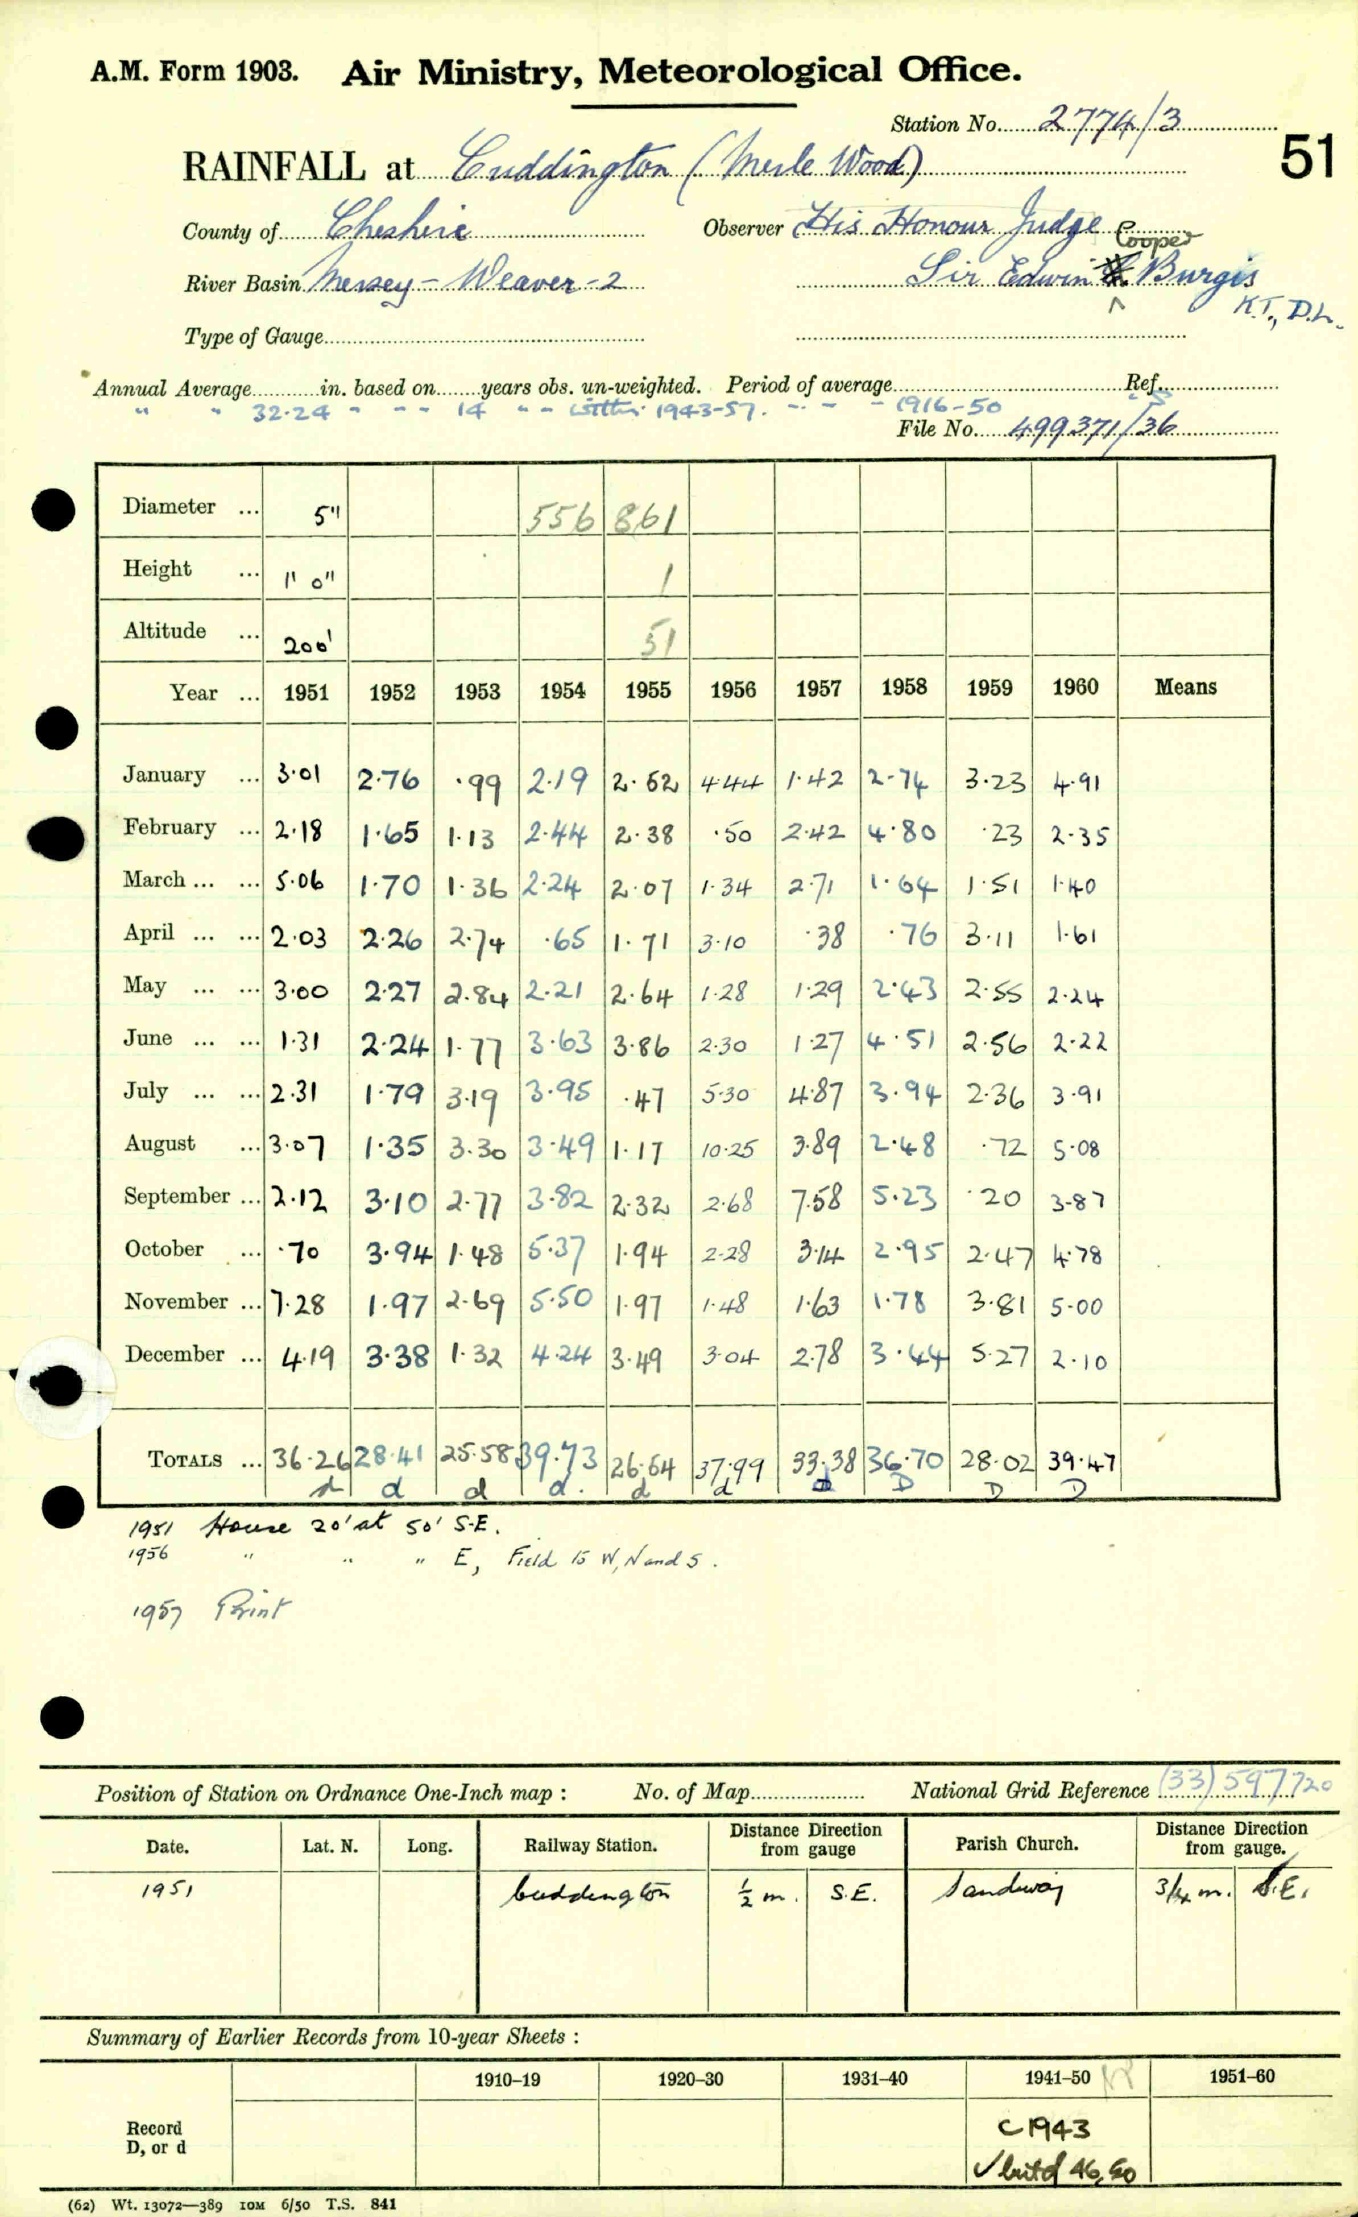 A.M. Form 1903. Air Ministry, Meteorological Office.
Station No. 2774/3
51
RAINFALL at Cuddington (Merle Wood)
County of Cheshire Observer His Honour Judge
Cooper
River Basin Mersey - Weaver - 2 Sir Edwin Burgis
K.T., D.L.
Type of Gauge
Annual Average in. based on years obs. un-weighted. Period of average Ref.
" " 32.24 " - - 14 " - within 1943-57. - - - 1916-50
File No. 499371/36
Diameter ... 5" 556 861
Height ... 1' 0" 1
Altitude ... 200' 51
Year ... 1951 1952 1953 1954 1955 1956 1957 1958 1959 1960 Means
January ... 3.01 2.76 .99 2.19 2.62 4.44 1.42 2.74 3.23 4.91
February ... 2.18 1.65 1.13 2.44 2.38 .50 2.42 4.80 .23 2.35
March ... ... 5.06 1.70 1.36 2.24 2.07 1.34 2.71 1.64 1.51 1.40
April ... ... 2.03 2.26 2.74 .65 1.71 3.10 .38 .76 3.11 1.61
May ... ... 3.00 2.27 2.84 2.21 2.64 1.28 1.29 2.43 2.55 2.24
June ... ... 1.31 2.24 1.77 3.63 3.86 2.30 1.27 4.51 2.56 2.22
July ... ... 2.31 1.79 3.19 3.95 .47 5.30 4.87 3.94 2.36 3.91
August ... 3.07 1.35 3.30 3.49 1.17 10.25 3.89 2.48 .72 5.08
September ... 2.12 3.10 2.77 3.82 2.32 2.68 7.58 5.23 .20 3.87
October ... .70 3.94 1.48 5.37 1.94 2.28 3.14 2.95 2.47 4.78
November ... 7.28 1.97 2.69 5.50 1.97 1.48 1.63 1.78 3.81 5.00
December ... 4.19 3.38 1.32 4.24 3.49 3.04 2.78 3.44 5.27 2.10
TOTALS ... 36.26 28.41 25.58 39.73 26.64 37.99 33.38 36.70 28.02 39.47
d d d d. d d D D D
1951 House 20' at 50' S.E.
1956 " " " E, Field 15 W, N and S.
1957 Print
Position of Station on Ordnance One-Inch map : No. of Map National Grid Reference (33) 597720
Date. Lat. N. Long. Railway Station. Distance from gauge Direction Parish Church. Distance from gauge. Direction
1951 Cuddington ½ m. S.E. Sandiway 3/4 m. S.E.
Summary of Earlier Records from 10-year Sheets :
1910–19 1920–30 1931–40 1941–50 1951–60
Record D, or d
C 1943
✓ but d 46, 50
(62) Wt. 13072—389 10M 6/50 T.S. 841